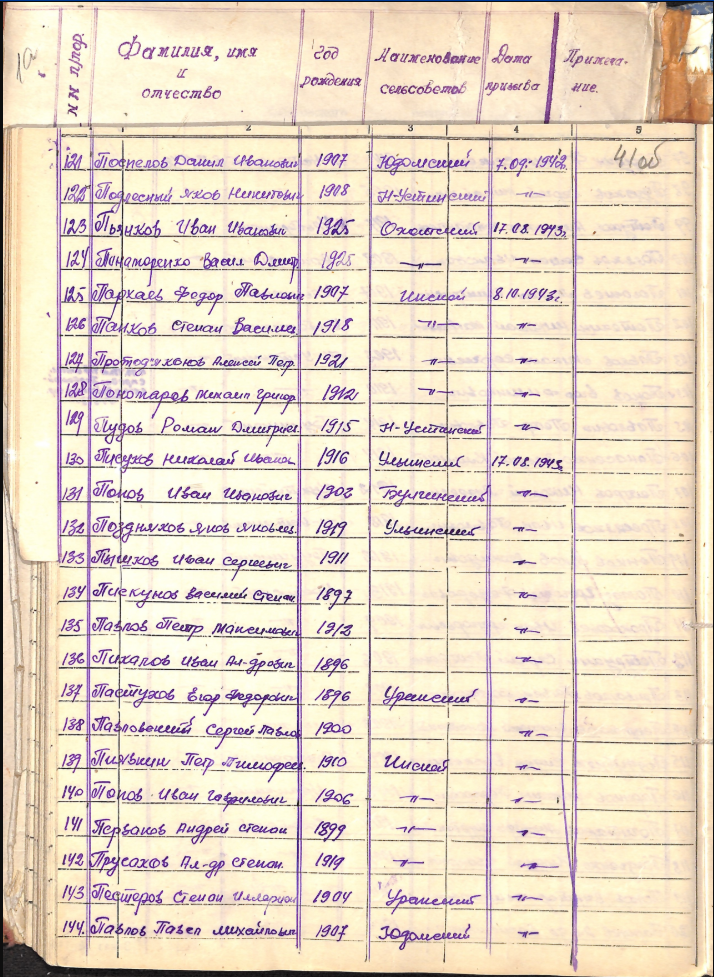 1а
NN п/пор.
Фамилия, имя
и
отчество
Год
рождения
Наименование
сельсоветов
Дата
призыва
Примеча-
ние.
1 2 3 4 5
41об
121 Поспелов Данил Иванович 1907 Юдомский 7.09.1942.
122 Подлесный Яков Никитович 1908 Н-Устинский -"-
123 Пьянков Иван Иванович 1925 Охотский 17.08.1943г
124 Понаморенко Васил Дмитр. 1925 -"- -"-
125 Пархаев Федор Павлович 1907 Инской 8.10.1943г.
126 Панков Степан Василье 1918 -"- -"-
127 Протодьяконов Алексей Петр 1921 -"- -"-
128 Пономарев Михаил Григор 1912 -"- -"-
129 Пудов Роман Дмитрие 1915 Н-Устинский -"-
130 Писухов Николай Иванов 1916 Ульинский 17.08.1943
131 Попов Иван Иванович 1902 Булгинский -"-
132 Поздняков Яков Яковлев. 1919 Ульинский -"-
133 Пышков Иван Сергеевич 1911 -"-
134 Пискунов Василий Степан 1897 -"-
135 Павлов Петр Максимович 1912 -"-
136 Пихалов Иван Ал-дрович 1896 -"-
137 Пастухов Егор Федорович 1896 Уракский -"-
138 Павловский Сергей Павлов 1900 -"-
139 Петр Тимофее 1910 Инской -"-
140 Попов Иван Гаврилович 1906 -"- -"-
141 Перваков Андрей Степан 1899 -"- -"-
142 Прусаков Ал-др Степан. 1919 -"- -"-
143 Пестеров Степан Илларион 1904 Уракский -"-
144. Павлов Павел Михайлович 1907 Юдомский -"-